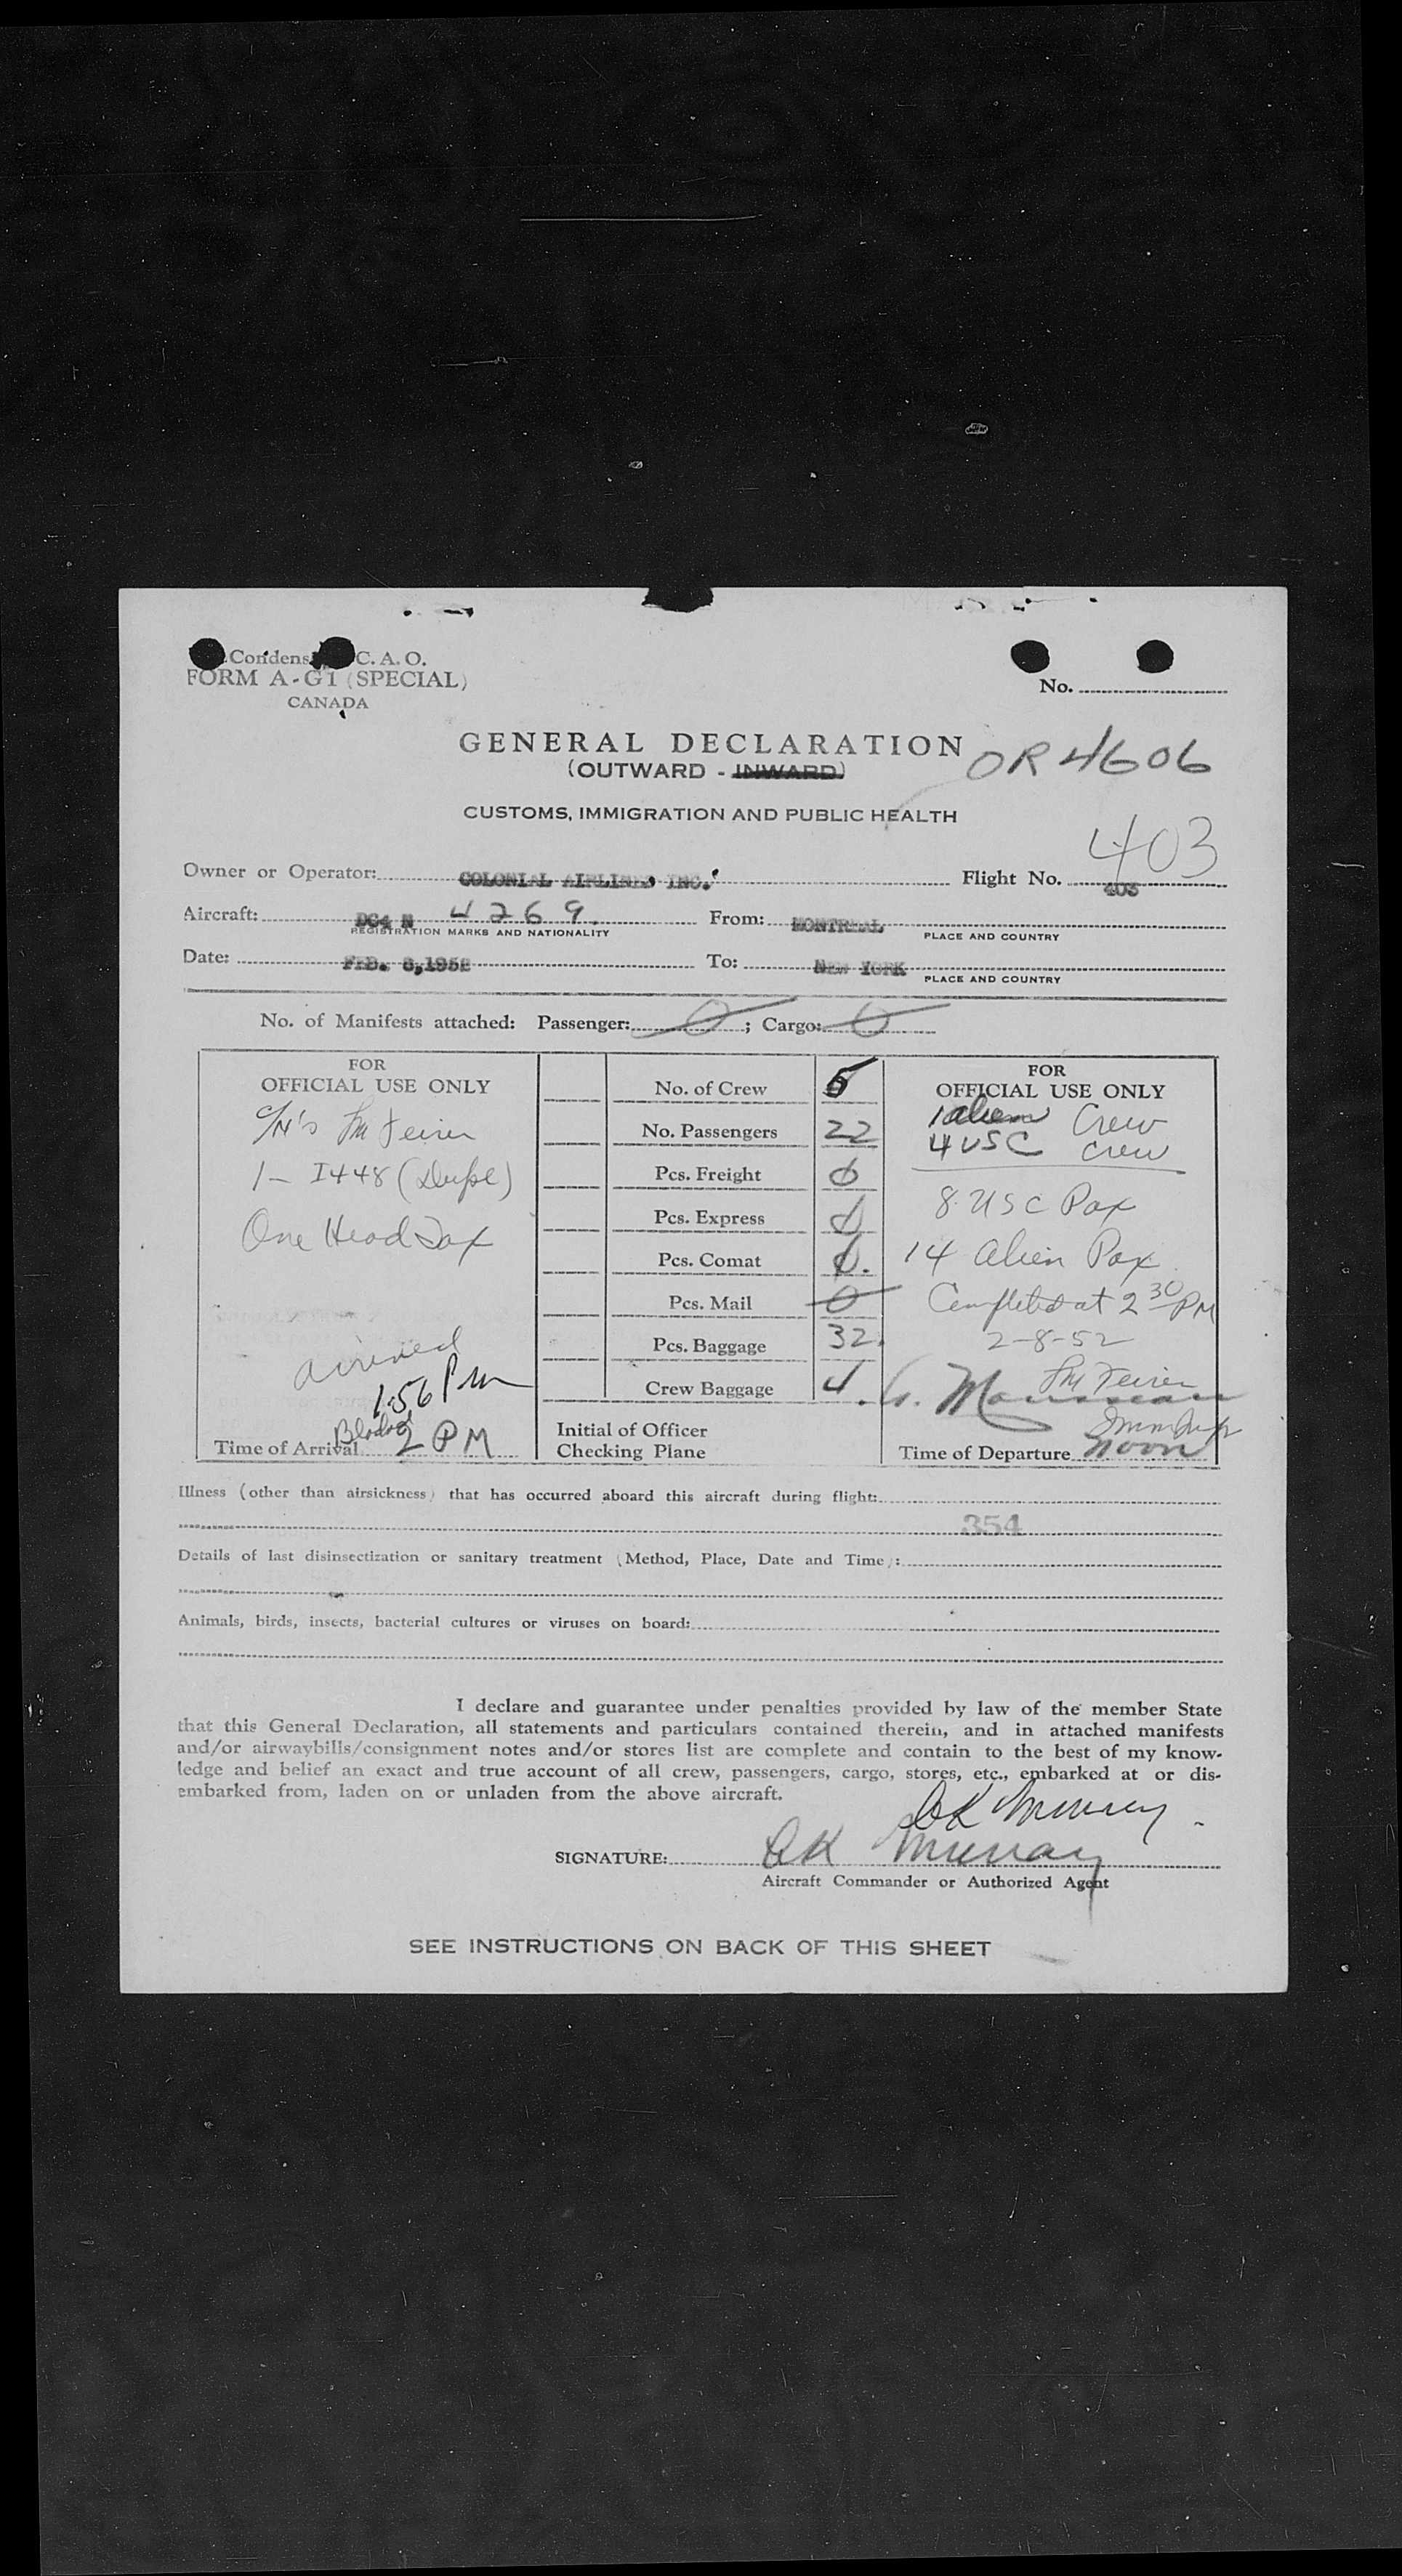 Condens C. A. O.
FORM A-G1 (SPECIAL)
CANADA
No.
GENERAL DECLARATION
(OUTWARD - INWARD)
OR 4606
CUSTOMS, IMMIGRATION AND PUBLIC HEALTH
403
Owner or Operator: COLONIAL AIRLINES INC. Flight No. 403
Aircraft: DC4 N 4269. From: MONTREAL
REGISTRATION MARKS AND NATIONALITY PLACE AND COUNTRY
Date: FEB. 8,1952 To: NEW YORK
PLACE AND COUNTRY
No. of Manifests attached: Passenger: 0 ; Cargo: 0
FOR
OFFICIAL USE ONLY
1 - I448 (Dupl)
One Head Tax
arrived
1:56 PM
Blocked
Time of Arrival 2 PM
No. of Crew 5
No. Passengers 22
Pcs. Freight 0
Pcs. Express 0
Pcs. Comat 0.
Pcs. Mail 0
Pcs. Baggage 32.
Crew Baggage 4.
Initial of Officer
Checking Plane
FOR
OFFICIAL USE ONLY
1 alien Crew
4 USC crew
8 USC Pax
14 alien Pax
Completed at 2 30 PM
2-8-52
Time of Departure noon
Illness (other than airsickness) that has occurred aboard this aircraft during flight:
354
Details of last disinsectization or sanitary treatment (Method, Place, Date and Time):
Animals, birds, insects, bacterial cultures or viruses on board:
I declare and guarantee under penalties provided by law of the member State
that this General Declaration, all statements and particulars contained therein, and in attached manifests
and/or airwaybills/consignment notes and/or stores list are complete and contain to the best of my know-
ledge and belief an exact and true account of all crew, passengers, cargo, stores, etc., embarked at or dis-
embarked from, laden on or unladen from the above aircraft.
CK Murray
SIGNATURE: CK Murray
Aircraft Commander or Authorized Agent
SEE INSTRUCTIONS ON BACK OF THIS SHEET